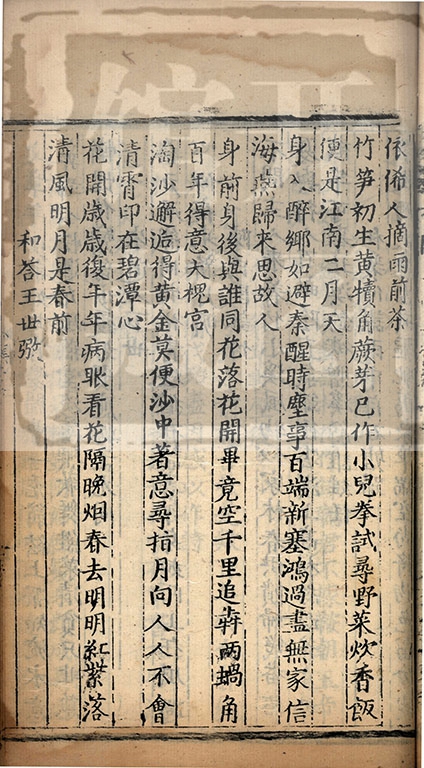 依俙人摘雨前茶
竹笋初生黄犢角蕨芽已作小兒拳試尋野菜炊香飯
便是江南二月天
身入醉鄉如避秦醒時塵事百端新塞鴻過盡無家信
海燕歸來思故人
身前身後與誰同花落花開畢竟空千里追犇兩蝸角
百年得意大槐宮
淘沙邂逅得黄金莫便沙中著意尋指月向人人不會
清霄印在碧潭心
花開歲歲復年年病眼看花隔晚烟春去明明紅紫落
清風明月是春前
和荅王世弼